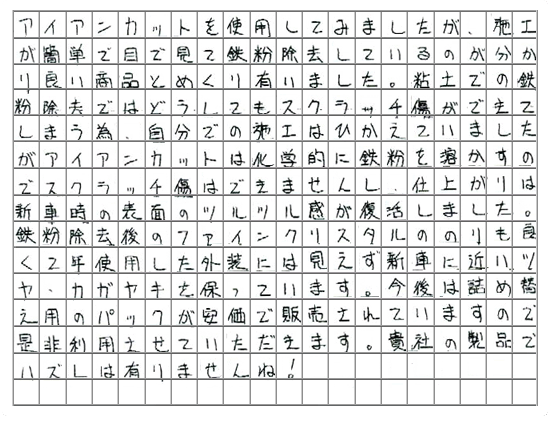 アイアンカットを使用してみましたが、施工
が簡単で目で見て鉄粉除去しているのが分か
り良い商品とめぐり有いました。粘土での鉄
粉除去ではどうしてもスクラッチ傷ができて
しまう為、自分での施工はひかえていました
がアイアンカットは化学的に鉄粉を溶かすの
でスクラッチ傷はできませんし、仕上がりは
新車時の表面のツルツル感が復活しました。
鉄粉除去後のファインクリスタルののりも良
くて2年使用した外装には見えず新車に近いツ
ヤ・カガヤキを保っています。今後は詰め替
え用のパックが安価で販売されていますので
是非利用させていただきます。貴社の製品で
ハズレは有りませんね!